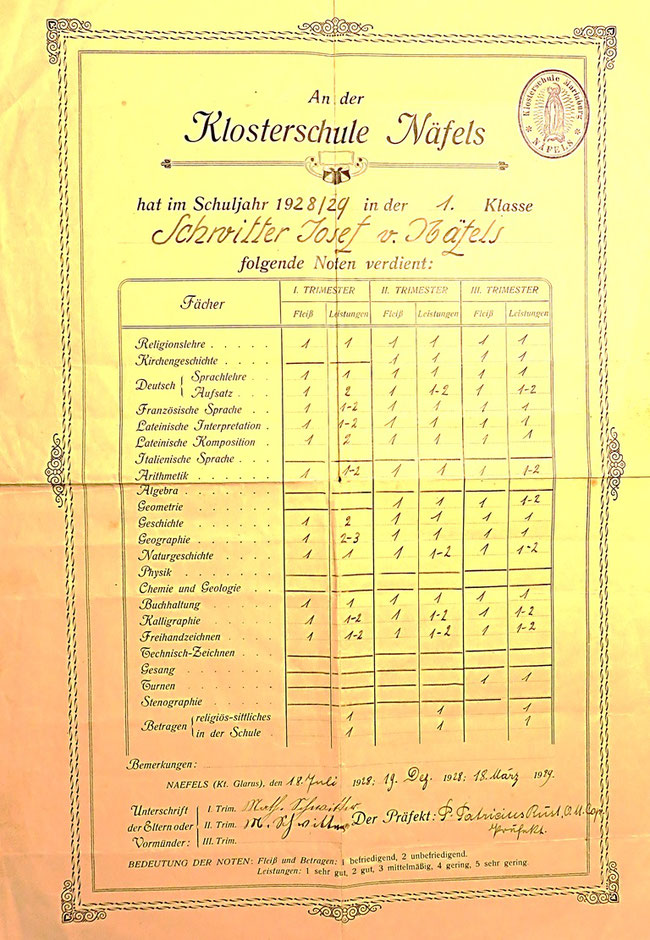 An der
Klosterschule Näfels
Klosterschule Mariaburg
NÄFELS
hat im Schuljahr 1928/29 in der 1. Klasse
Schwitter Josef v. Näfels
folgende Noten verdient:
Fächer I. TRIMESTER II. TRIMESTER III. TRIMESTER
Fleiß Leistungen Fleiß Leistungen Fleiß Leistungen
Religionslehre 1 1 1 1 1 1
Kirchengeschichte — — 1 1 1 1
Deutsch { Sprachlehre 1 1 1 1 1 1
Aufsatz 1 2 1 1-2 1 1-2
Französische Sprache 1 1-2 1 1 1 1
Lateinische Interpretation 1 1-2 1 1 1 1
Lateinische Komposition 1 2 1 1 1 1
Italienische Sprache — — — — — —
Arithmetik 1 1-2 1 1 1 1-2
Algebra — — — — — —
Geometrie — — 1 1 1 1-2
Geschichte 1 2 1 1 1 1
Geographie 1 2-3 1 1 1 1
Naturgeschichte 1 1 1 1-2 1 1-2
Physik — — — — — —
Chemie und Geologie — — — — — —
Buchhaltung 1 1 1 1 1 1
Kalligraphie 1 1-2 1 1-2 1 1-2
Freihandzeichnen 1 1-2 1 1-2 1 1-2
Technisch-Zeichnen — — — — — —
Gesang — — — — — —
Turnen — — — — 1 1
Stenographie — — — — — —
Betragen { religiös-sittliches 1 1 1
in der Schule 1 1 1
Bemerkungen:
NAEFELS (Kt. Glarus), den 18. Juli 1928; 19. Dez. 1928; 18. März 1929.
Unterschrift der Eltern oder Vormünder:
I. Trim. Math. Schwitter
II. Trim. M. Schwitter
III. Trim.
Der Präfekt: P. Patricius Rust, O. M. Cap.
Präfekt.
BEDEUTUNG DER NOTEN: Fleiß und Betragen: 1 befriedigend, 2 unbefriedigend.
Leistungen: 1 sehr gut, 2 gut, 3 mittelmäßig, 4 gering, 5 sehr gering.